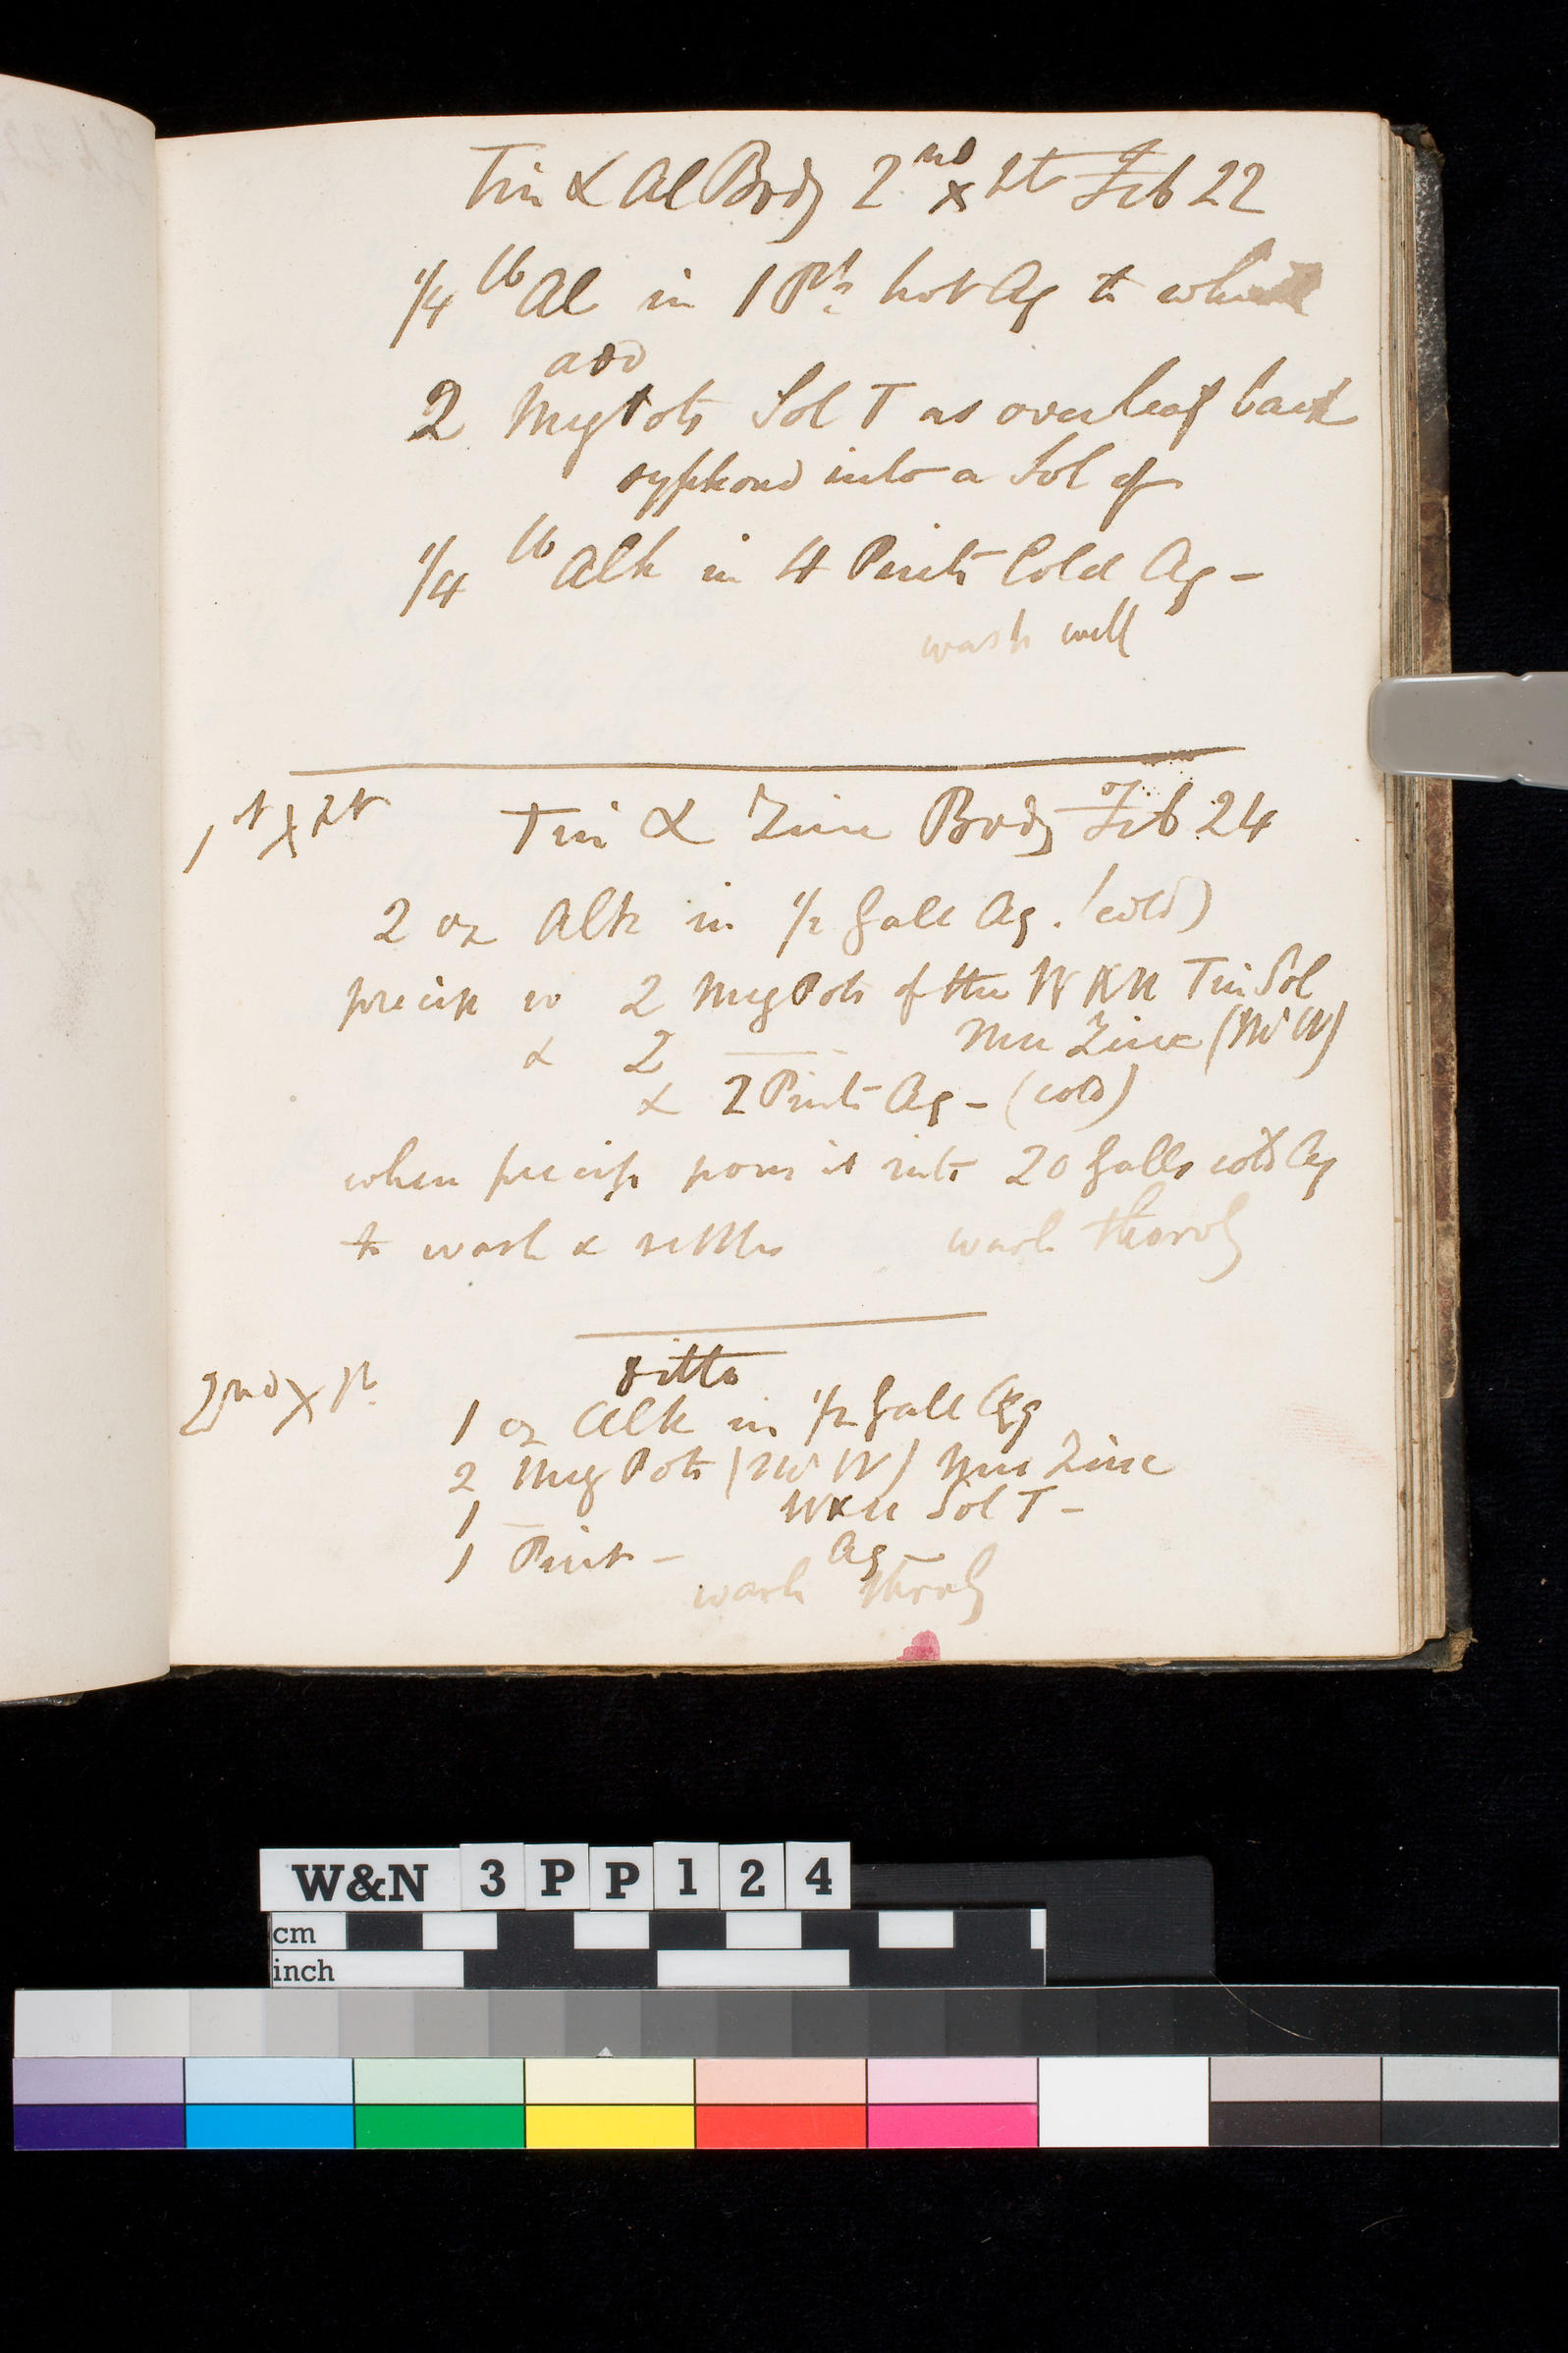 Tin & Al Body 2nd x pt Feb 22
1/4 lb Al in 1 Pt hot Aq to which
add
2 Mgtots Sol T as overleaf back
syphond into a Sol of
1/4 lb Alk in 4 Pints Cold Aq -
wash well
1st x pt Tin & Zinc Body Feb 24
2 oz Alk in 1/2 Gall Aq. (cold)
precip w 2 Mg Pots of the Tin Sol
& 2 — Mu Zinc
& 2 Pints Aq - (cold)
when precip pour it into 20 Galls cold Aq
to wash & settle wash thoroly
2nd x pt ditto
1 oz Alk in 1/2 Gall Aq
2 Mg Pots Mu Zinc
1 — Sol T -
1 Pint - Aq -
wash throly
W&N 3PP124
cm
inch